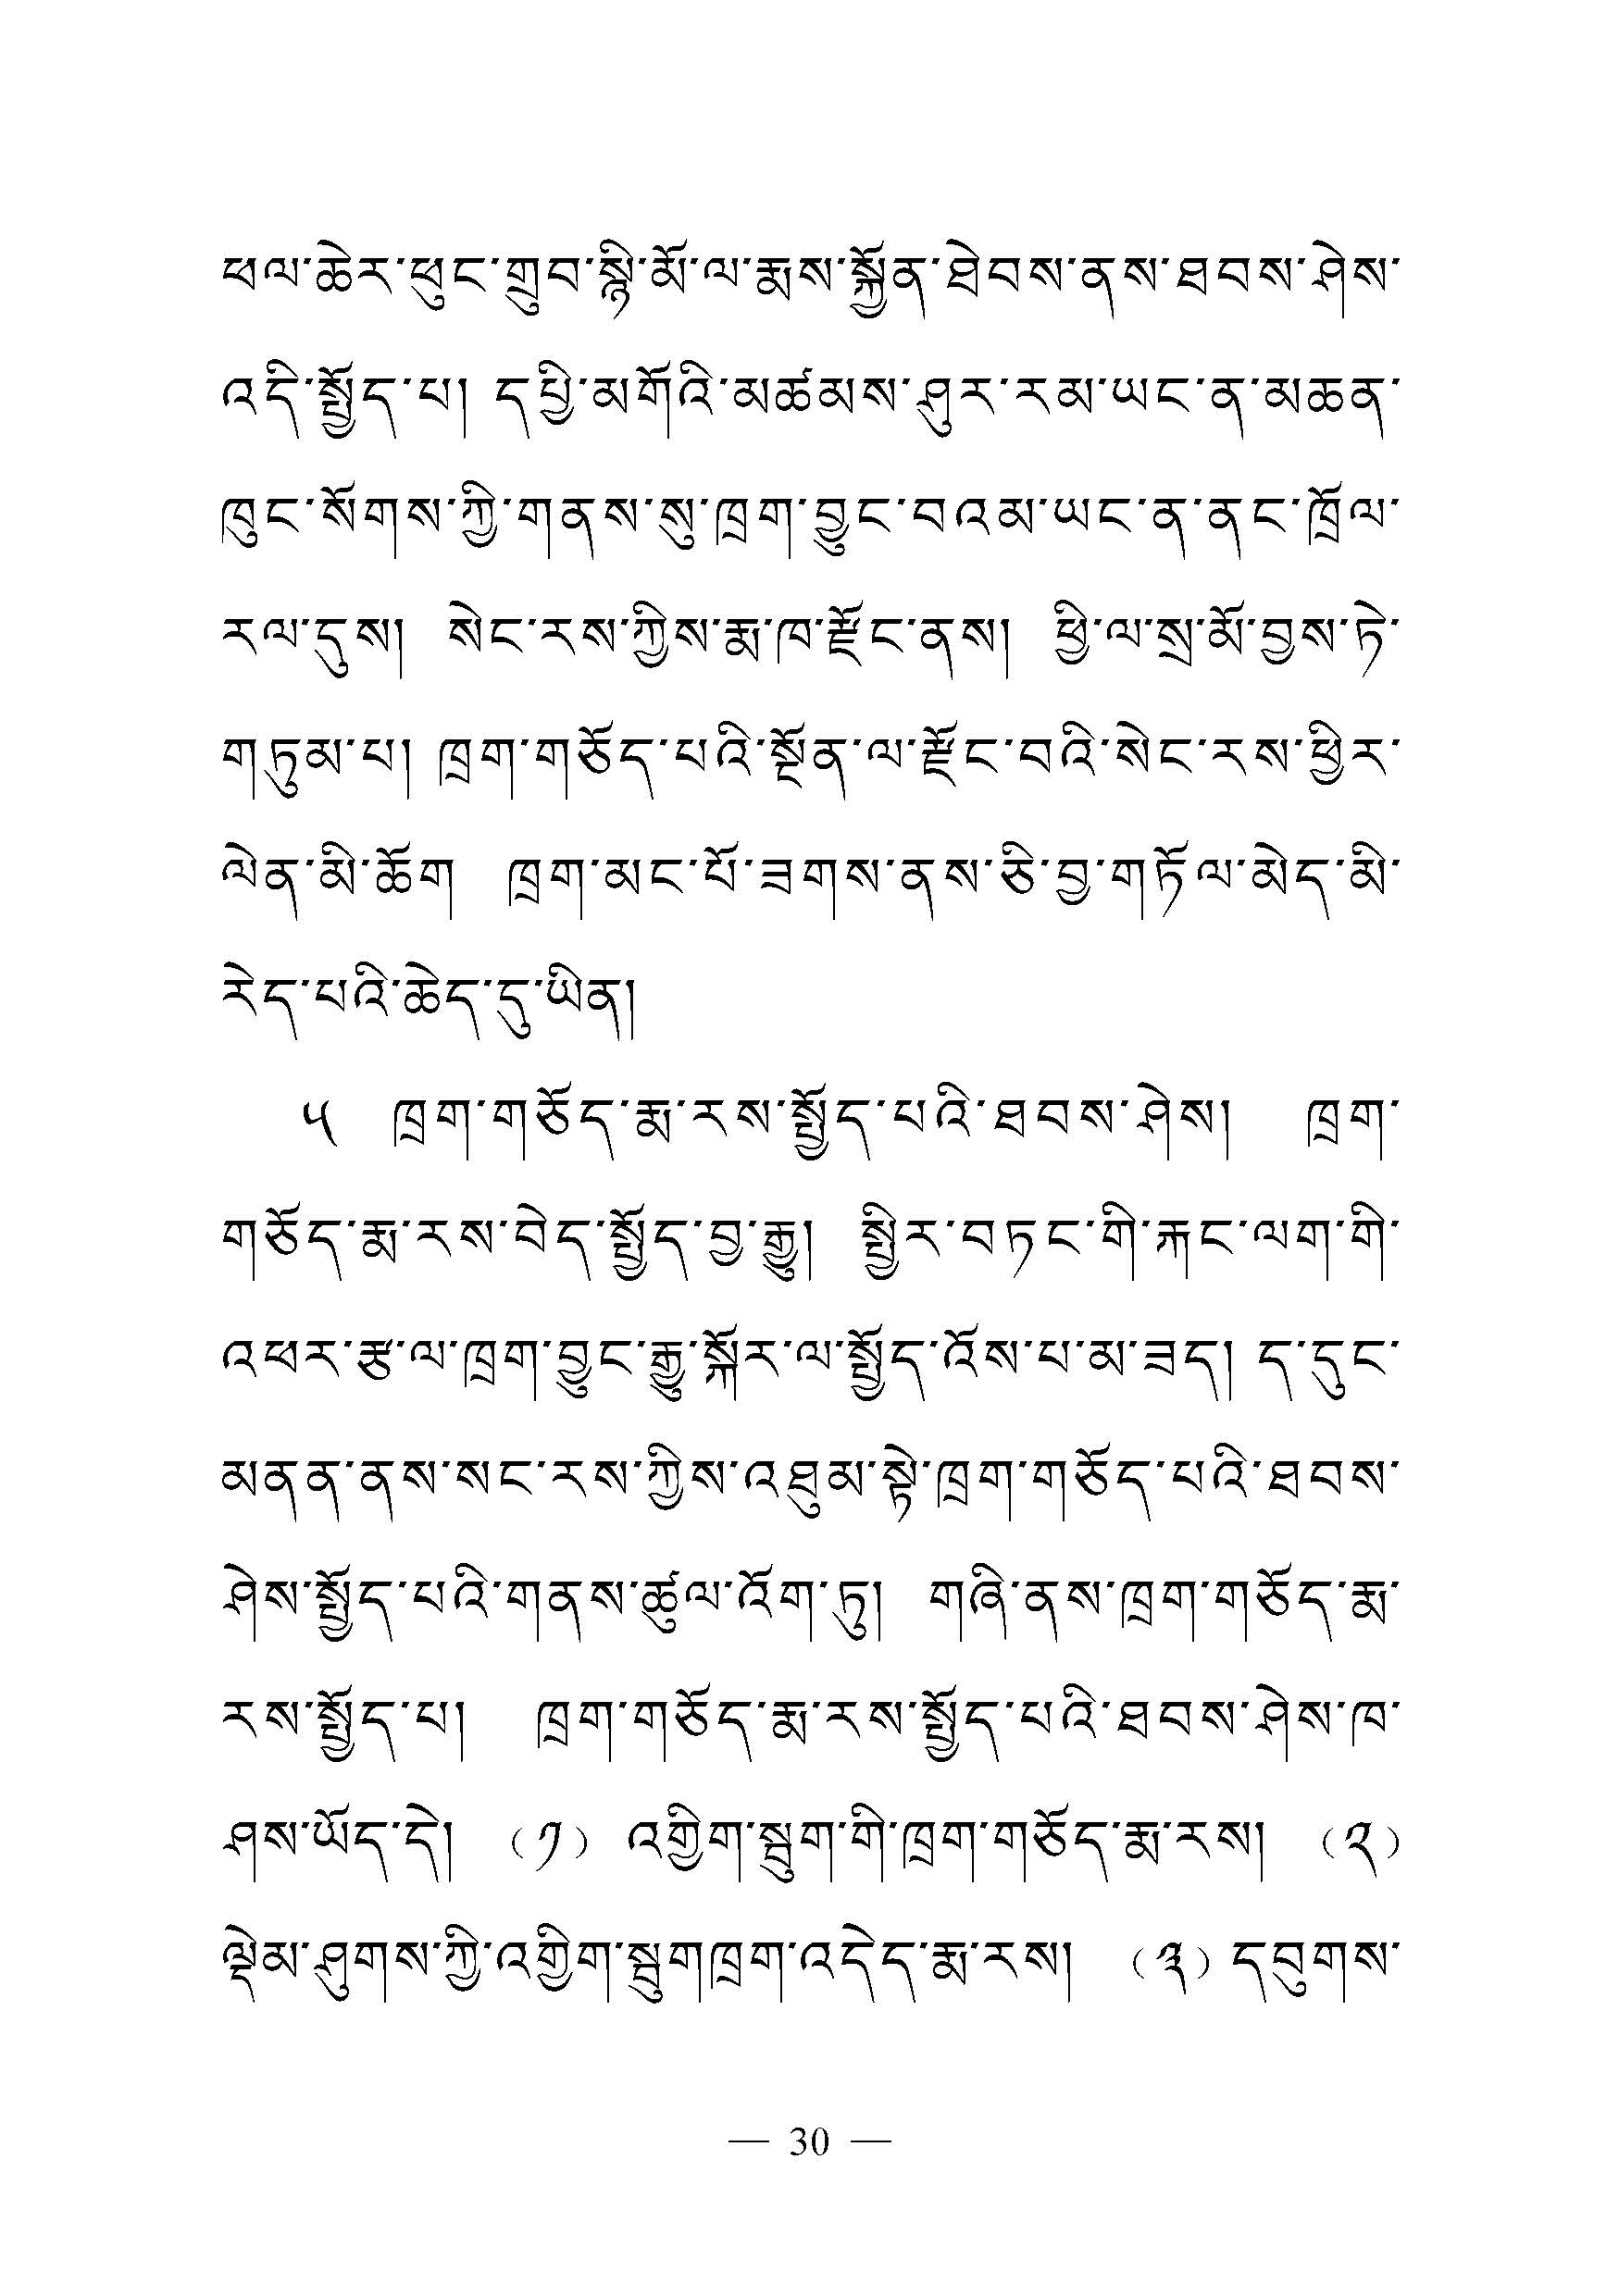 ཕལ་ཆེར་ཕུང་གྲུབ་སྙི་མོ་ལ་རྨས་སྐྱོན་ཐེབས་ནས་ཐབས་ཤེས་
འདི་སྤྱོད་པ། དཔྱི་མགོའི་མཚམས་ཤུར་རམ་ཡང་ན་མཆན་
ཁུང་སོགས་ཀྱི་གནས་སུ་ཁྲག་བྱུང་བའམ་ཡང་ན་ནང་ཁྲོལ་
རལ་དུས། སེང་རས་ཀྱིས་རྨ་ཁ་རྫོང་ནས། ཕྱི་ལ་སྲ་མོ་བྱས་ཏེ་
གཏུམ་པ། ཁྲག་གཅོད་པའི་སྔོན་ལ་རྫོང་བའི་སེང་རས་ཕྱིར་
ལེན་མི་ཆོག ཁྲག་མང་པོ་ཟགས་ནས་ཅི་བྱ་གཏོལ་མེད་མི་
རེད་པའི་ཆེད་དུ་ཡིན།
༥ ཁྲག་གཅོད་རྨ་རས་སྤྱོད་པའི་ཐབས་ཤེས། ཁྲག་
གཅོད་རྨ་རས་བེད་སྤྱོད་བྱ་རྒྱུ། སྤྱིར་བཏང་གི་རྐང་ལག་གི་
འཕར་རྩ་ལ་ཁྲག་བྱུང་རྒྱུ་སྐོར་ལ་སྤྱོད་འོས་པ་མ་ཟད། ད་དུང་
མནན་ནས་སང་རས་ཀྱིས་འཐུམ་སྟེ་ཁྲག་གཅོད་པའི་ཐབས་
ཤེས་སྤྱོད་པའི་གནས་ཚུལ་འོག་ཏུ། གཞི་ནས་ཁྲག་གཅོད་རྨ་
རས་སྤྱོད་པ། ཁྲག་གཅོད་རྨ་རས་སྤྱོད་པའི་ཐབས་ཤེས་ཁ་
ཤས་ཡོད་དེ། (༡) འགྱིག་སྦུག་གི་ཁྲག་གཅོད་རྨ་རས། (༢)
ལྡེམ་ཤུགས་ཀྱི་འགྱིག་སྦུགཁྲག་འདེད་རྨ་རས། (༣) དབུགས་
— 30 —